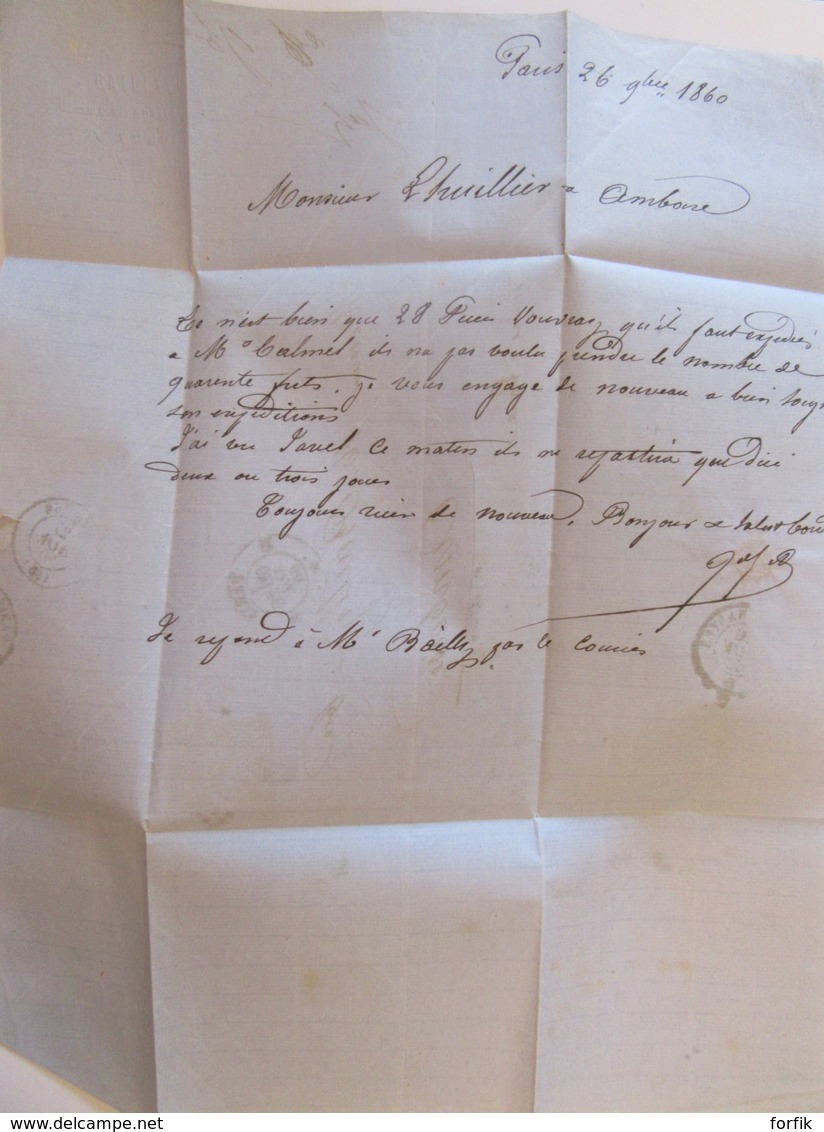 Paris 26 9bre 1860
Monsieur Lhuillier a Amboise
Ce n'est bien que 28 Vouvray qu'ils faut expédiés
a Mr Calmel ils na pas voulu prendre le nombre de
quarente futs. je vous engage de nouveau a bien soign
son expéditions
J'ai vu Javel ce matin ils ne repartira que d'ici
deux ou trois jours
Toujours rien de nouveau. Bonjour & salut
Je repond à Mr Bailly par le Courier
forfik